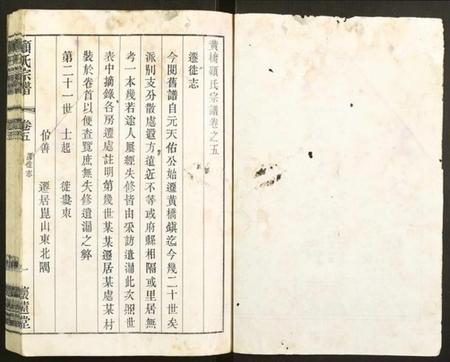 黃橋顧氏宗譜卷之五
遷徙志
今閱舊譜自元天佑公始遷黃橋鎮迄今幾二十世矣
派別支分散處遐方遠近不等或府縣相隔或里居無
考一本幾若途人屢經失修皆由采訪遺漏此次照世
表中摘錄各房遷處註明第幾世某某遷居某處某村
裝於卷首以便查覽庶無失修遺漏之弊
第二十一世 士起 徙盡東
伯善 遷居崑山東北隅
顧氏宗譜
卷五
遷徙志
一